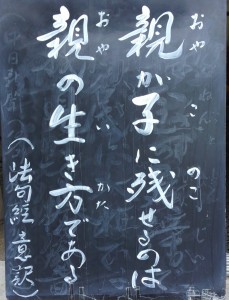 親が子に残せるのは
おや こ のこ
親の生き方である
おや い かた
（法句経意訳）